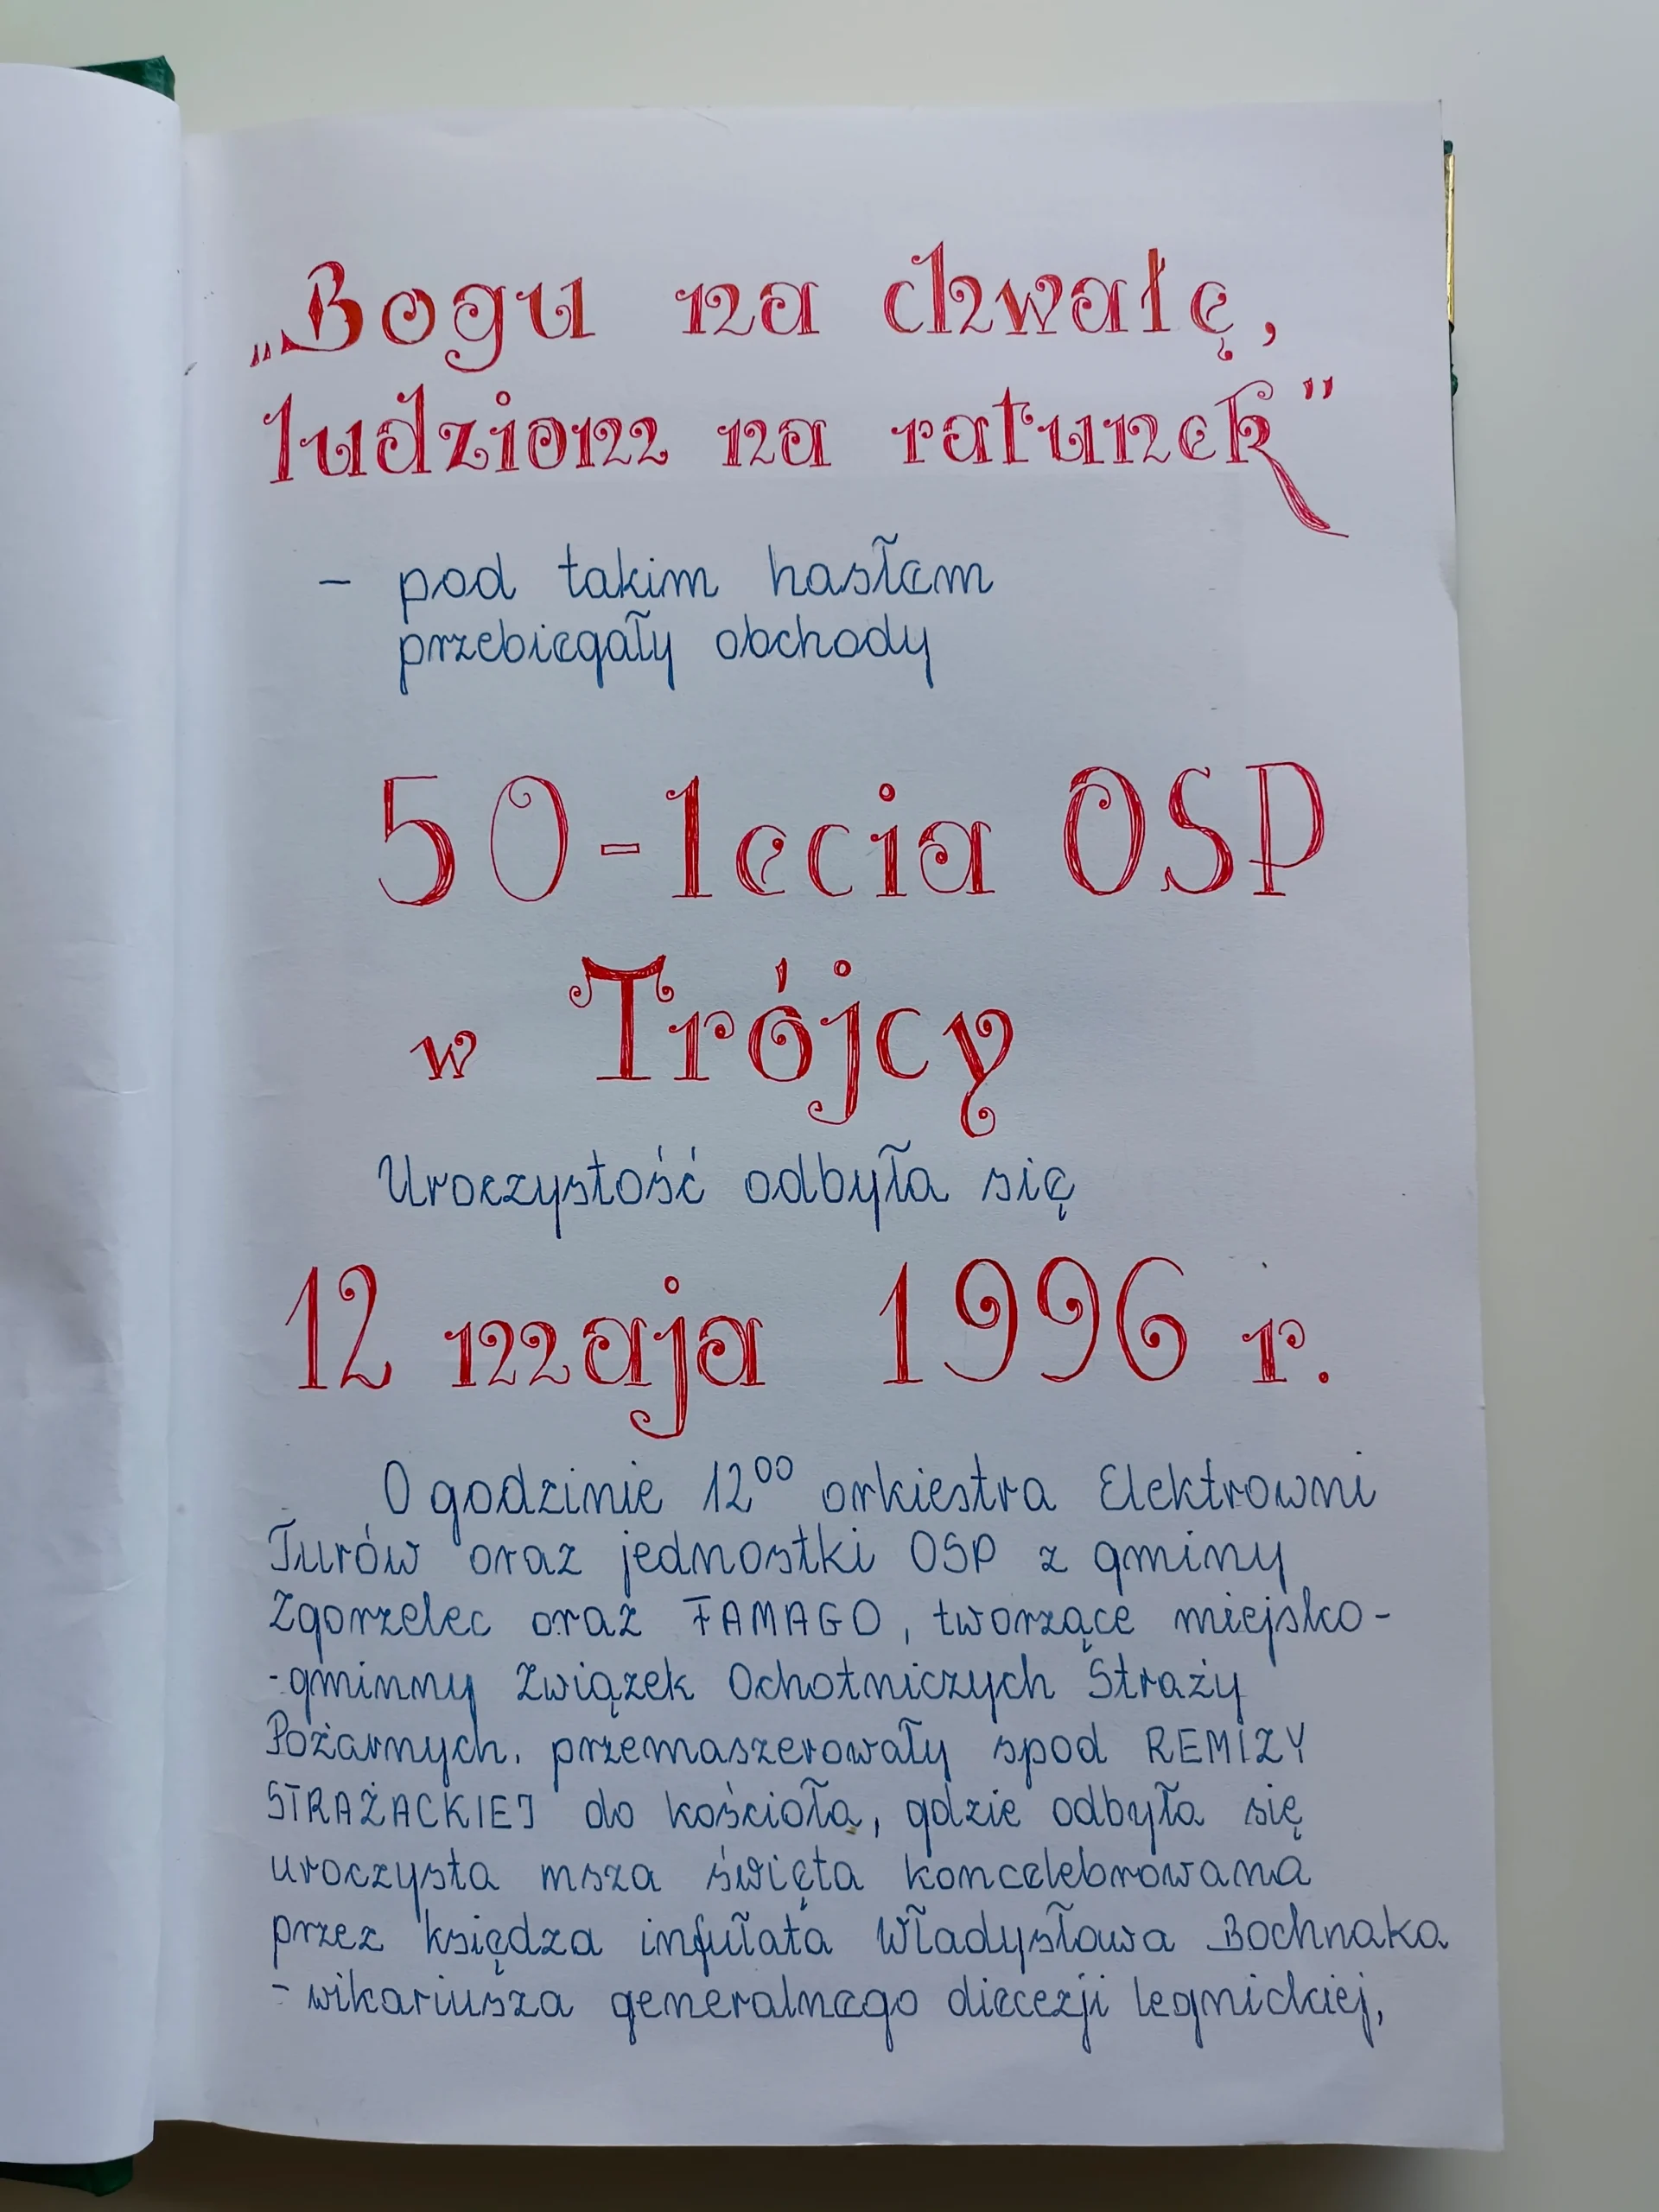 „Bogu na chwałę,
ludziom na ratunek”
- pod takim hasłem
przebiegały obchody
50-lecia OSP
w Trójcy
Uroczystość odbyła się
12 maja 1996 r.
O godzinie 12⁰⁰ orkiestra Elektrowni
Turów oraz jednostki OSP z gminy
Zgorzelec oraz FAMAGO, tworzące miejsko-
-gminny Związek Ochotniczych Straży
Pożarnych. przemaszerowały spod REMIZY
STRAŻACKIEJ do kościoła, gdzie odbyła się
uroczysta msza święta koncelebrowana
przez księdza infułata Władysłowa Bochnaka
- wikariusza generalnego diecezji legnickiej,